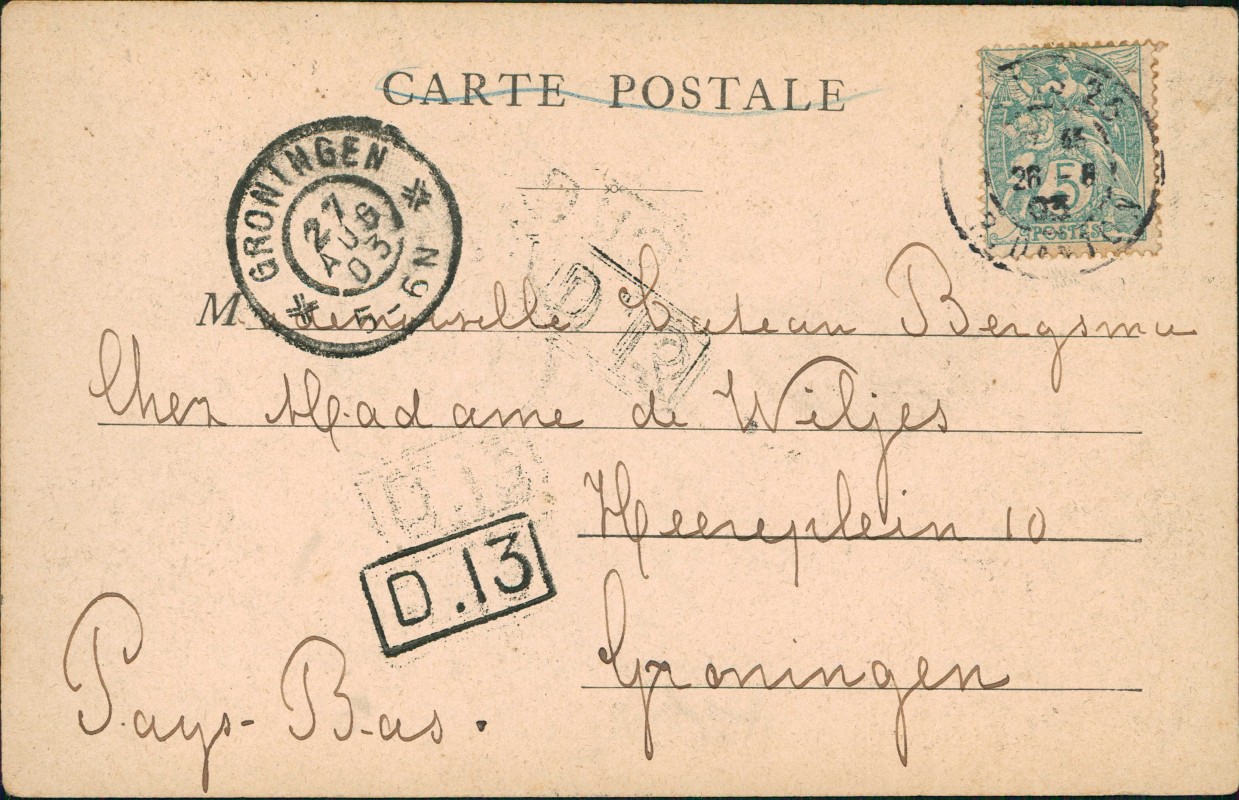 CARTE POSTALE
GRONINGEN
27
AUG
03
5-6N
26 -8
03
5
POSTES
D.
Mademoiselle Bergsma
Chez Madame de Wiljes
D.13
Heereplein 10
D.13
Groningen
Pays-Bas.